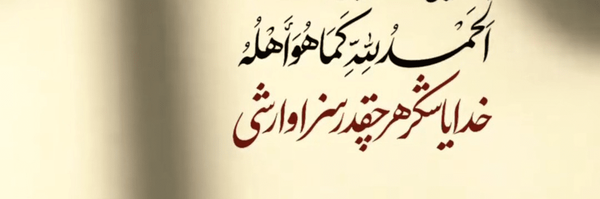 اَلحَمْدُ لِلّهِ كَمَا هُوَ اَهْلُهُ
خدایا شکر هر چقدر سزاوارشی